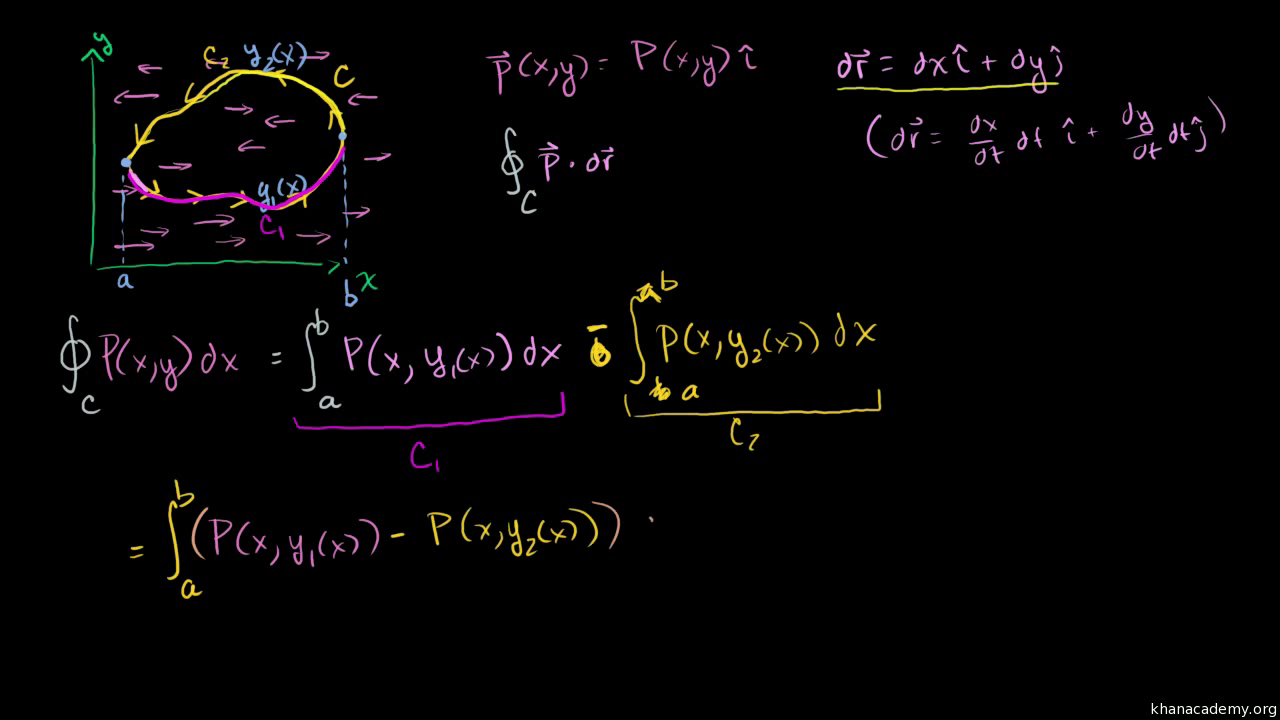 y
C₂ y₂(x)
C
y₁(x)
C₁
a
b
x
P⃗(x,y) = P(x,y) î
∮_C P⃗ · dr⃗
dr⃗ = dx î + dy ĵ
(dr⃗ = dx/dt dt î + dy/dt dt ĵ)
∮_C P(x,y) dx = ∫_a^b P(x, y₁(x)) dx - ∫_a^b P(x, y₂(x)) dx
C₁
C₂
= ∫_a^b (P(x, y₁(x)) - P(x, y₂(x)))
khanacademy.org